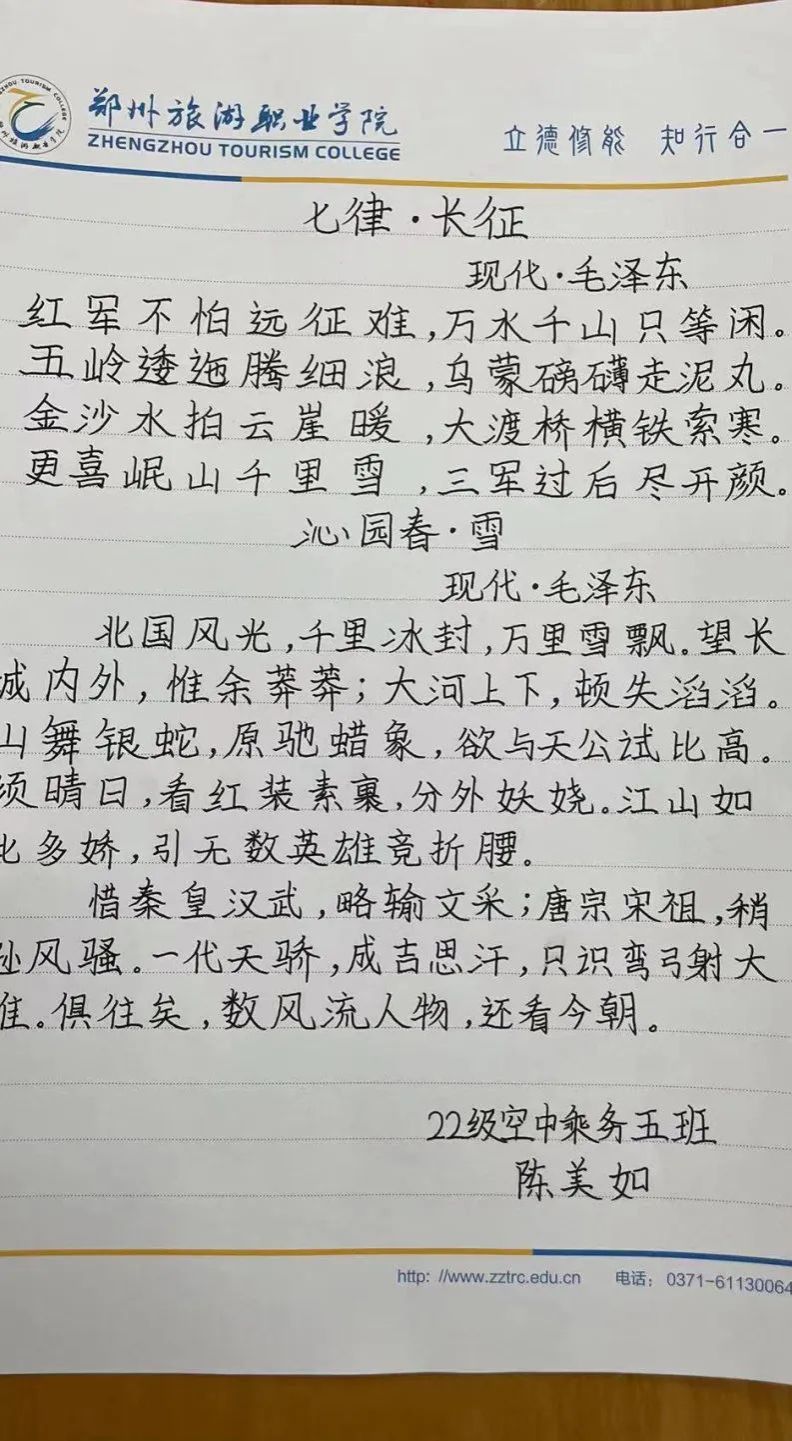 郑州旅游职业学院
ZHENGZHOU TOURISM COLLEGE
立德修能 知行合一
七律·长征
现代·毛泽东
红军不怕远征难,万水千山只等闲。
五岭逶迤腾细浪,乌蒙磅礴走泥丸。
金沙水拍云崖暖,大渡桥横铁索寒。
更喜岷山千里雪,三军过后尽开颜。
沁园春·雪
现代·毛泽东
北国风光,千里冰封,万里雪飘。望长
城内外,惟余莽莽;大河上下,顿失滔滔。
山舞银蛇,原驰蜡象,欲与天公试比高。
须晴日,看红装素裹,分外妖娆。江山如
此多娇,引无数英雄竞折腰。
惜秦皇汉武,略输文采;唐宗宋祖,稍
逊风骚。一代天骄,成吉思汗,只识弯弓射大
雕。俱往矣,数风流人物,还看今朝。
22级空中乘务五班
陈美如
http: //www.zztrc.edu.cn 电话: 0371-61130064